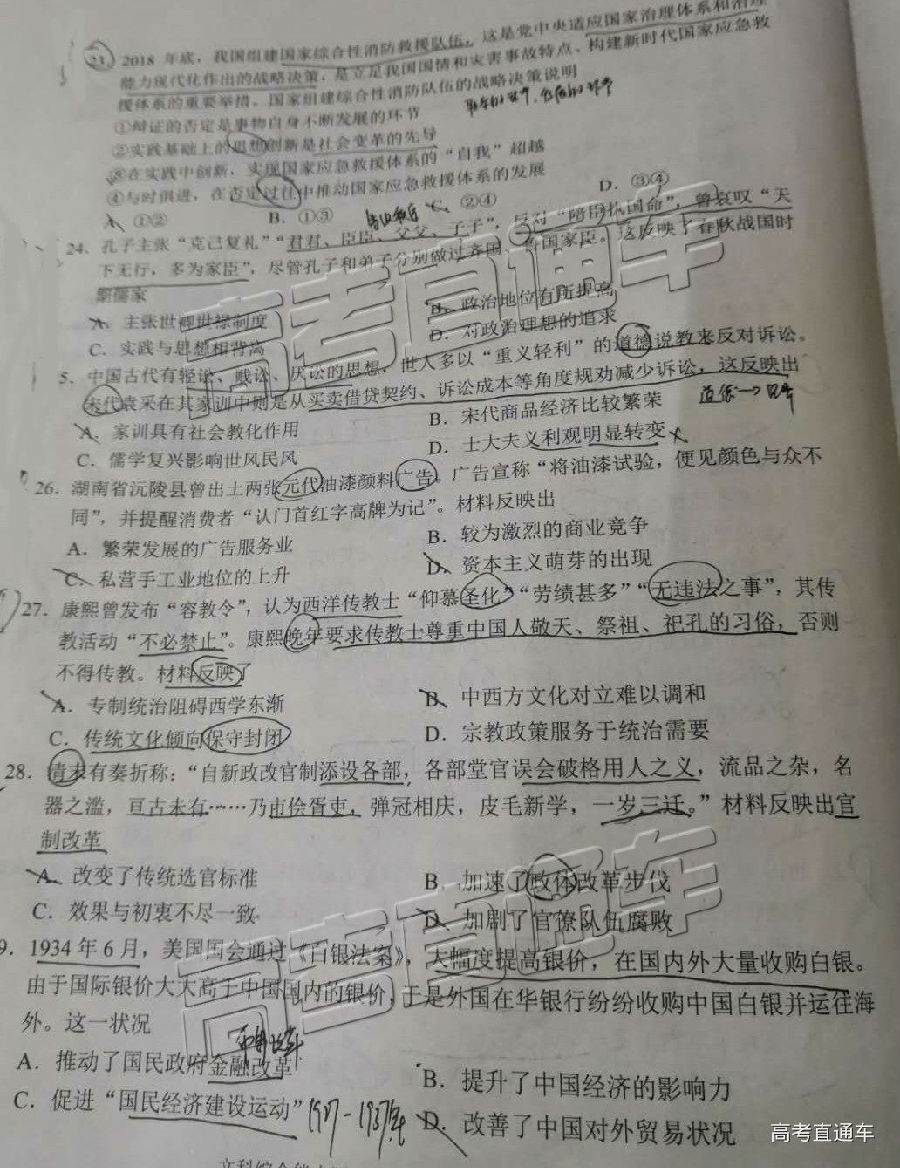 23. 2018 年底，我国组建国家综合性消防救援队伍，这是党中央适应国家治理体系和治理
能力现代化作出的战略决策，是立足我国国情和灾害事故特点、构建新时代国家应急救
援体系的重要举措。国家组建综合性消防队伍的战略决策说明
①辩证的否定是事物自身不断发展的环节
②实践基础上的思想创新是社会变革的先导
③在实践中创新，实现国家应急救援体系的“自我”超越
④与时俱进，在否定过往中推动国家应急救援体系的发展
A. ①② B. ①③ C. ②④ D. ③④
24. 孔子主张“克己复礼”“君君、臣臣、父父、子子”，反对“陪臣执国命”，曾哀叹“天
下无行，多为家臣”，尽管孔子和弟子分别做过齐国、鲁国家臣。这反映了春秋战国时
期儒家
A. 主张世卿世禄制度 B. 政治地位有所提高
C. 实践与思想相背离 D. 对政治理想的追求
5. 中国古代有轻讼、贱讼、厌讼的思想，世人多以“重义轻利”的道德说教来反对诉讼。
宋代袁采在其家训中则是从买卖借贷契约、诉讼成本等角度规劝减少诉讼，这反映出
A. 家训具有社会教化作用 B. 宋代商品经济比较繁荣
C. 儒学复兴影响世风民风 D. 士大夫义利观明显转变
26. 湖南省沅陵县曾出土两张元代油漆颜料广告，广告宣称“将油漆试验，便见颜色与众不
同”，并提醒消费者“认门首红字高牌为记”。材料反映出
A. 繁荣发展的广告服务业 B. 较为激烈的商业竞争
C. 私营手工业地位的上升 D. 资本主义萌芽的出现
27. 康熙曾发布“容教令”，认为西洋传教士“仰慕圣化”“劳绩甚多”“无违法之事”，其传
教活动“不必禁止”。康熙晚年要求传教士尊重中国人敬天、祭祖、祀孔的习俗，否则
不得传教。材料反映了
A. 专制统治阻碍西学东渐 B. 中西方文化对立难以调和
C. 传统文化倾向保守封闭 D. 宗教政策服务于统治需要
28. 清末有奏折称：“自新政改官制添设各部，各部堂官误会破格用人之义，流品之杂，名
器之滥，亘古未有……乃市侩胥吏，弹冠相庆，皮毛新学，一岁三迁。”材料反映出官
制改革
A. 改变了传统选官标准 B 加速了政体改革步伐
C. 效果与初衷不尽一致 D. 加剧了官僚队伍腐败
9. 1934 年 6 月，美国国会通过《白银法案》，大幅度提高银价，在国内外大量收购白银。
由于国际银价大大高于中国国内的银价，于是外国在华银行纷纷收购中国白银并运往海
外。这一状况
A. 推动了国民政府金融改革 B. 提升了中国经济的影响力
C. 促进“国民经济建设运动” 1927-1937年 D. 改善了中国对外贸易状况
高考直通车
高考直通车
高考直通车